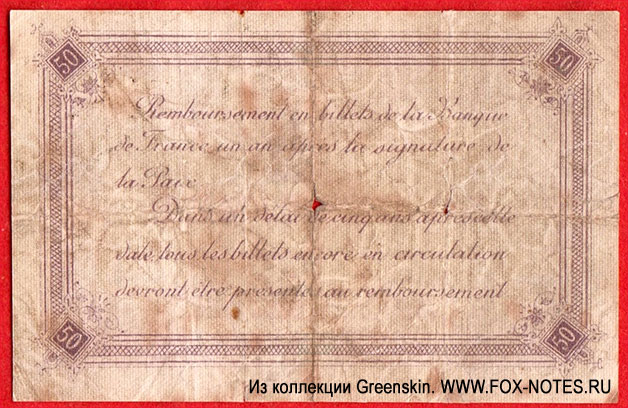 50 50
Remboursement en billets de la Banque
de France un an après la signature de
la Paix
Dans un délai de cinq ans après cette
date tous les billets encore en circulation
devront être présentés au remboursement
50 50
Из коллекции Greenskin. WWW.FOX-NOTES.RU